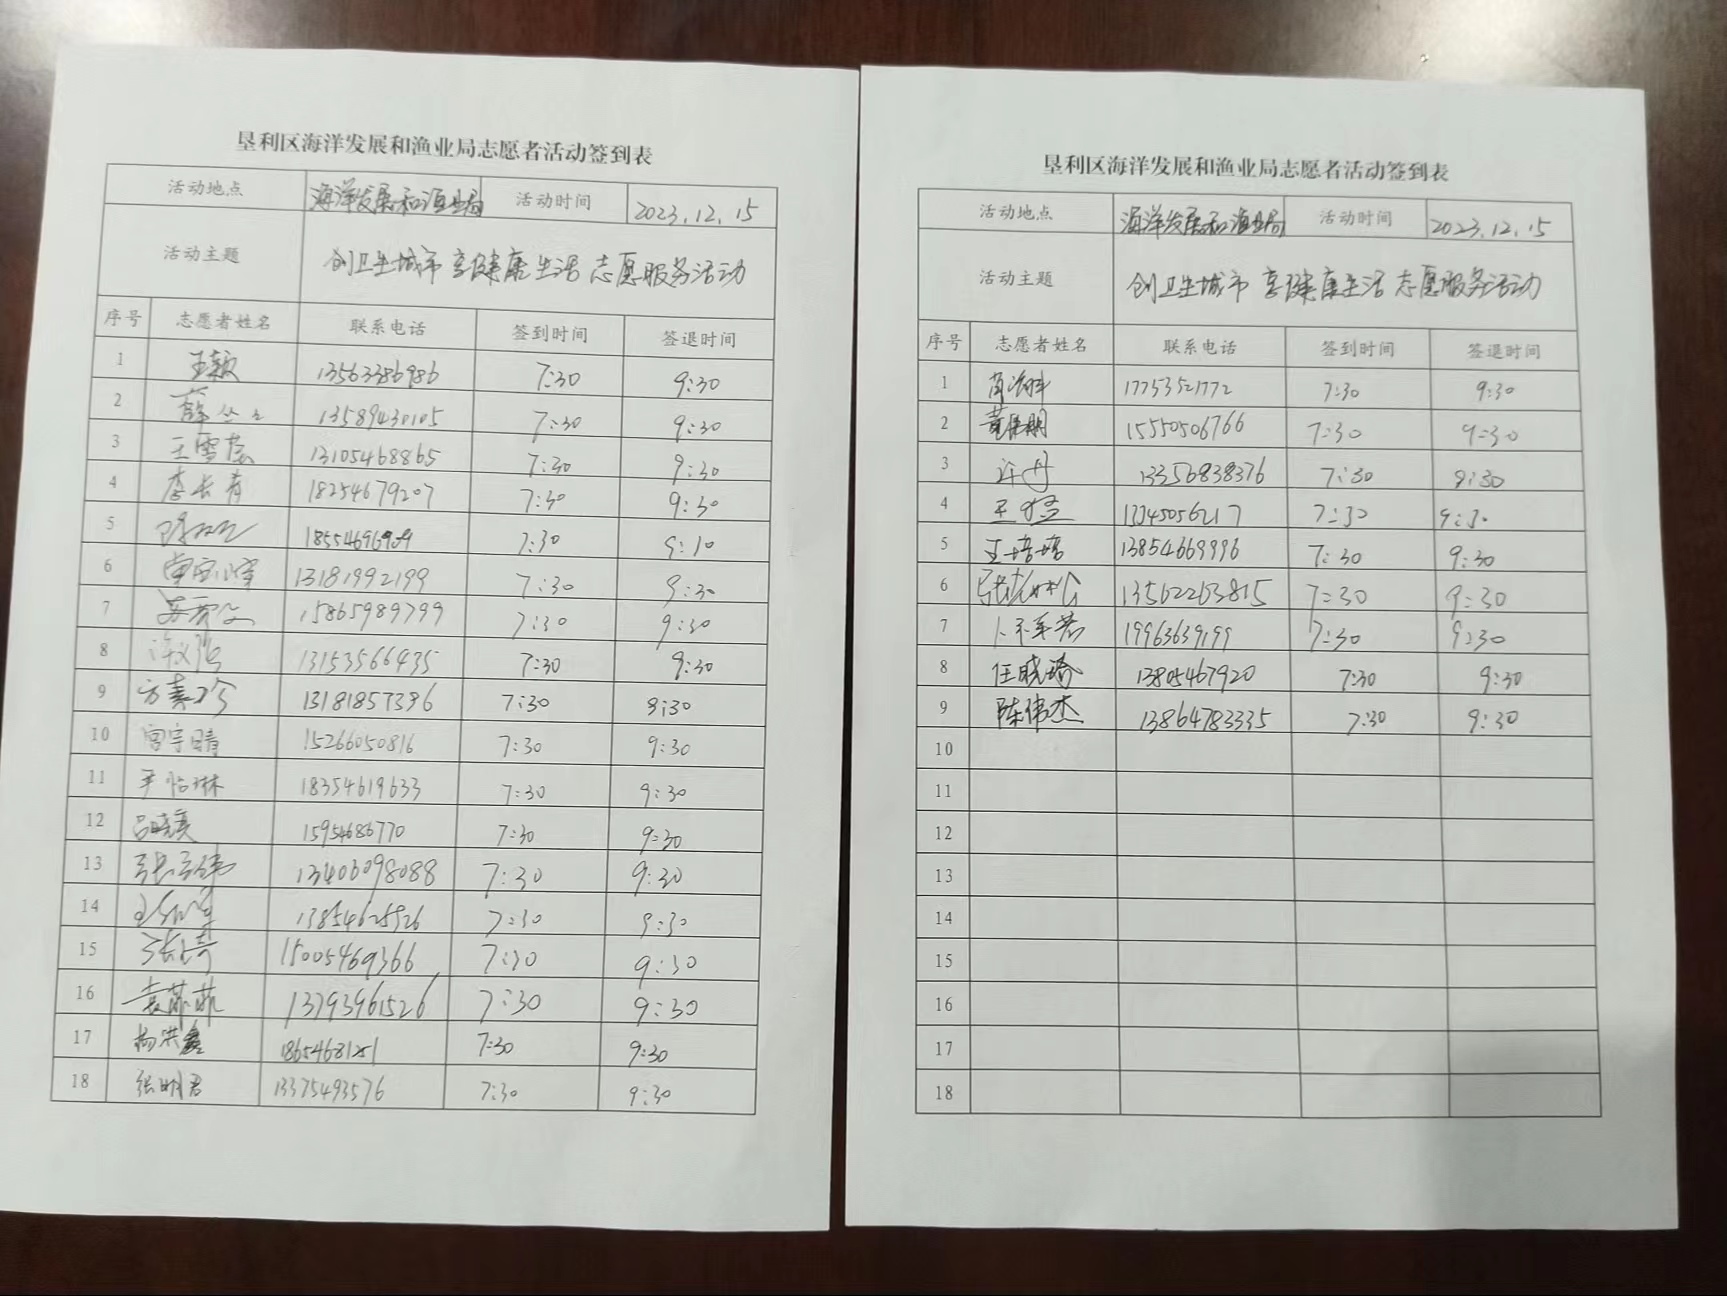 垦利区海洋发展和渔业局志愿者活动签到表
活动地点 海洋发展和渔业局 活动时间 2023.12.15
活动主题 创卫生城市 享健康生活 志愿服务活动
序号 志愿者姓名 联系电话 签到时间 签退时间
1 王颖 13563386986 7:30 9:30
2 薛丛丛 13589430105 7:30 9:30
3 王雪莹 13105468865 7:30 9:30
4 李长青 18254679207 7:30 9:30
5 7:30 9:10
6 13181992199 7:30 9:30
7 15865989799 7:30 9:30
8 13153566435 7:30 9:30
9 方素珍 13181857396 7:30 9:30
10 宫宇晴 15266050816 7:30 9:30
11 尹怡琳 18354619633 7:30 9:30
12 吕晓美 15954686770 7:30 9:30
13 13406098088 7:30 9:30
14 13854625926 7:30 9:30
15 张琦 15005469366 7:30 9:30
16 袁菲菲 13793961526 7:30 9:30
17 杨洪鑫 18654681251 7:30 9:30
18 张明君 13375493576 7:30 9:30
垦利区海洋发展和渔业局志愿者活动签到表
活动地点 海洋发展和渔业局 活动时间 2023.12.15
活动主题 创卫生城市 享健康生活 志愿服务活动
序号 志愿者姓名 联系电话 签到时间 签退时间
1 17753521772 7:30 9:30
2 15550506766 7:30 9:30
3 许丹 13356838376 7:30 9:30
4 13345056217 7:30 9:30
5 王培培 13854669996 7:30 9:30
6 13562263815 7:30 9:30
7 19963639199 7:30 9:30
8 任晓璐 13805467920 7:30 9:30
9 陈伟杰 13864783335 7:30 9:30
10
11
12
13
14
15
16
17
18